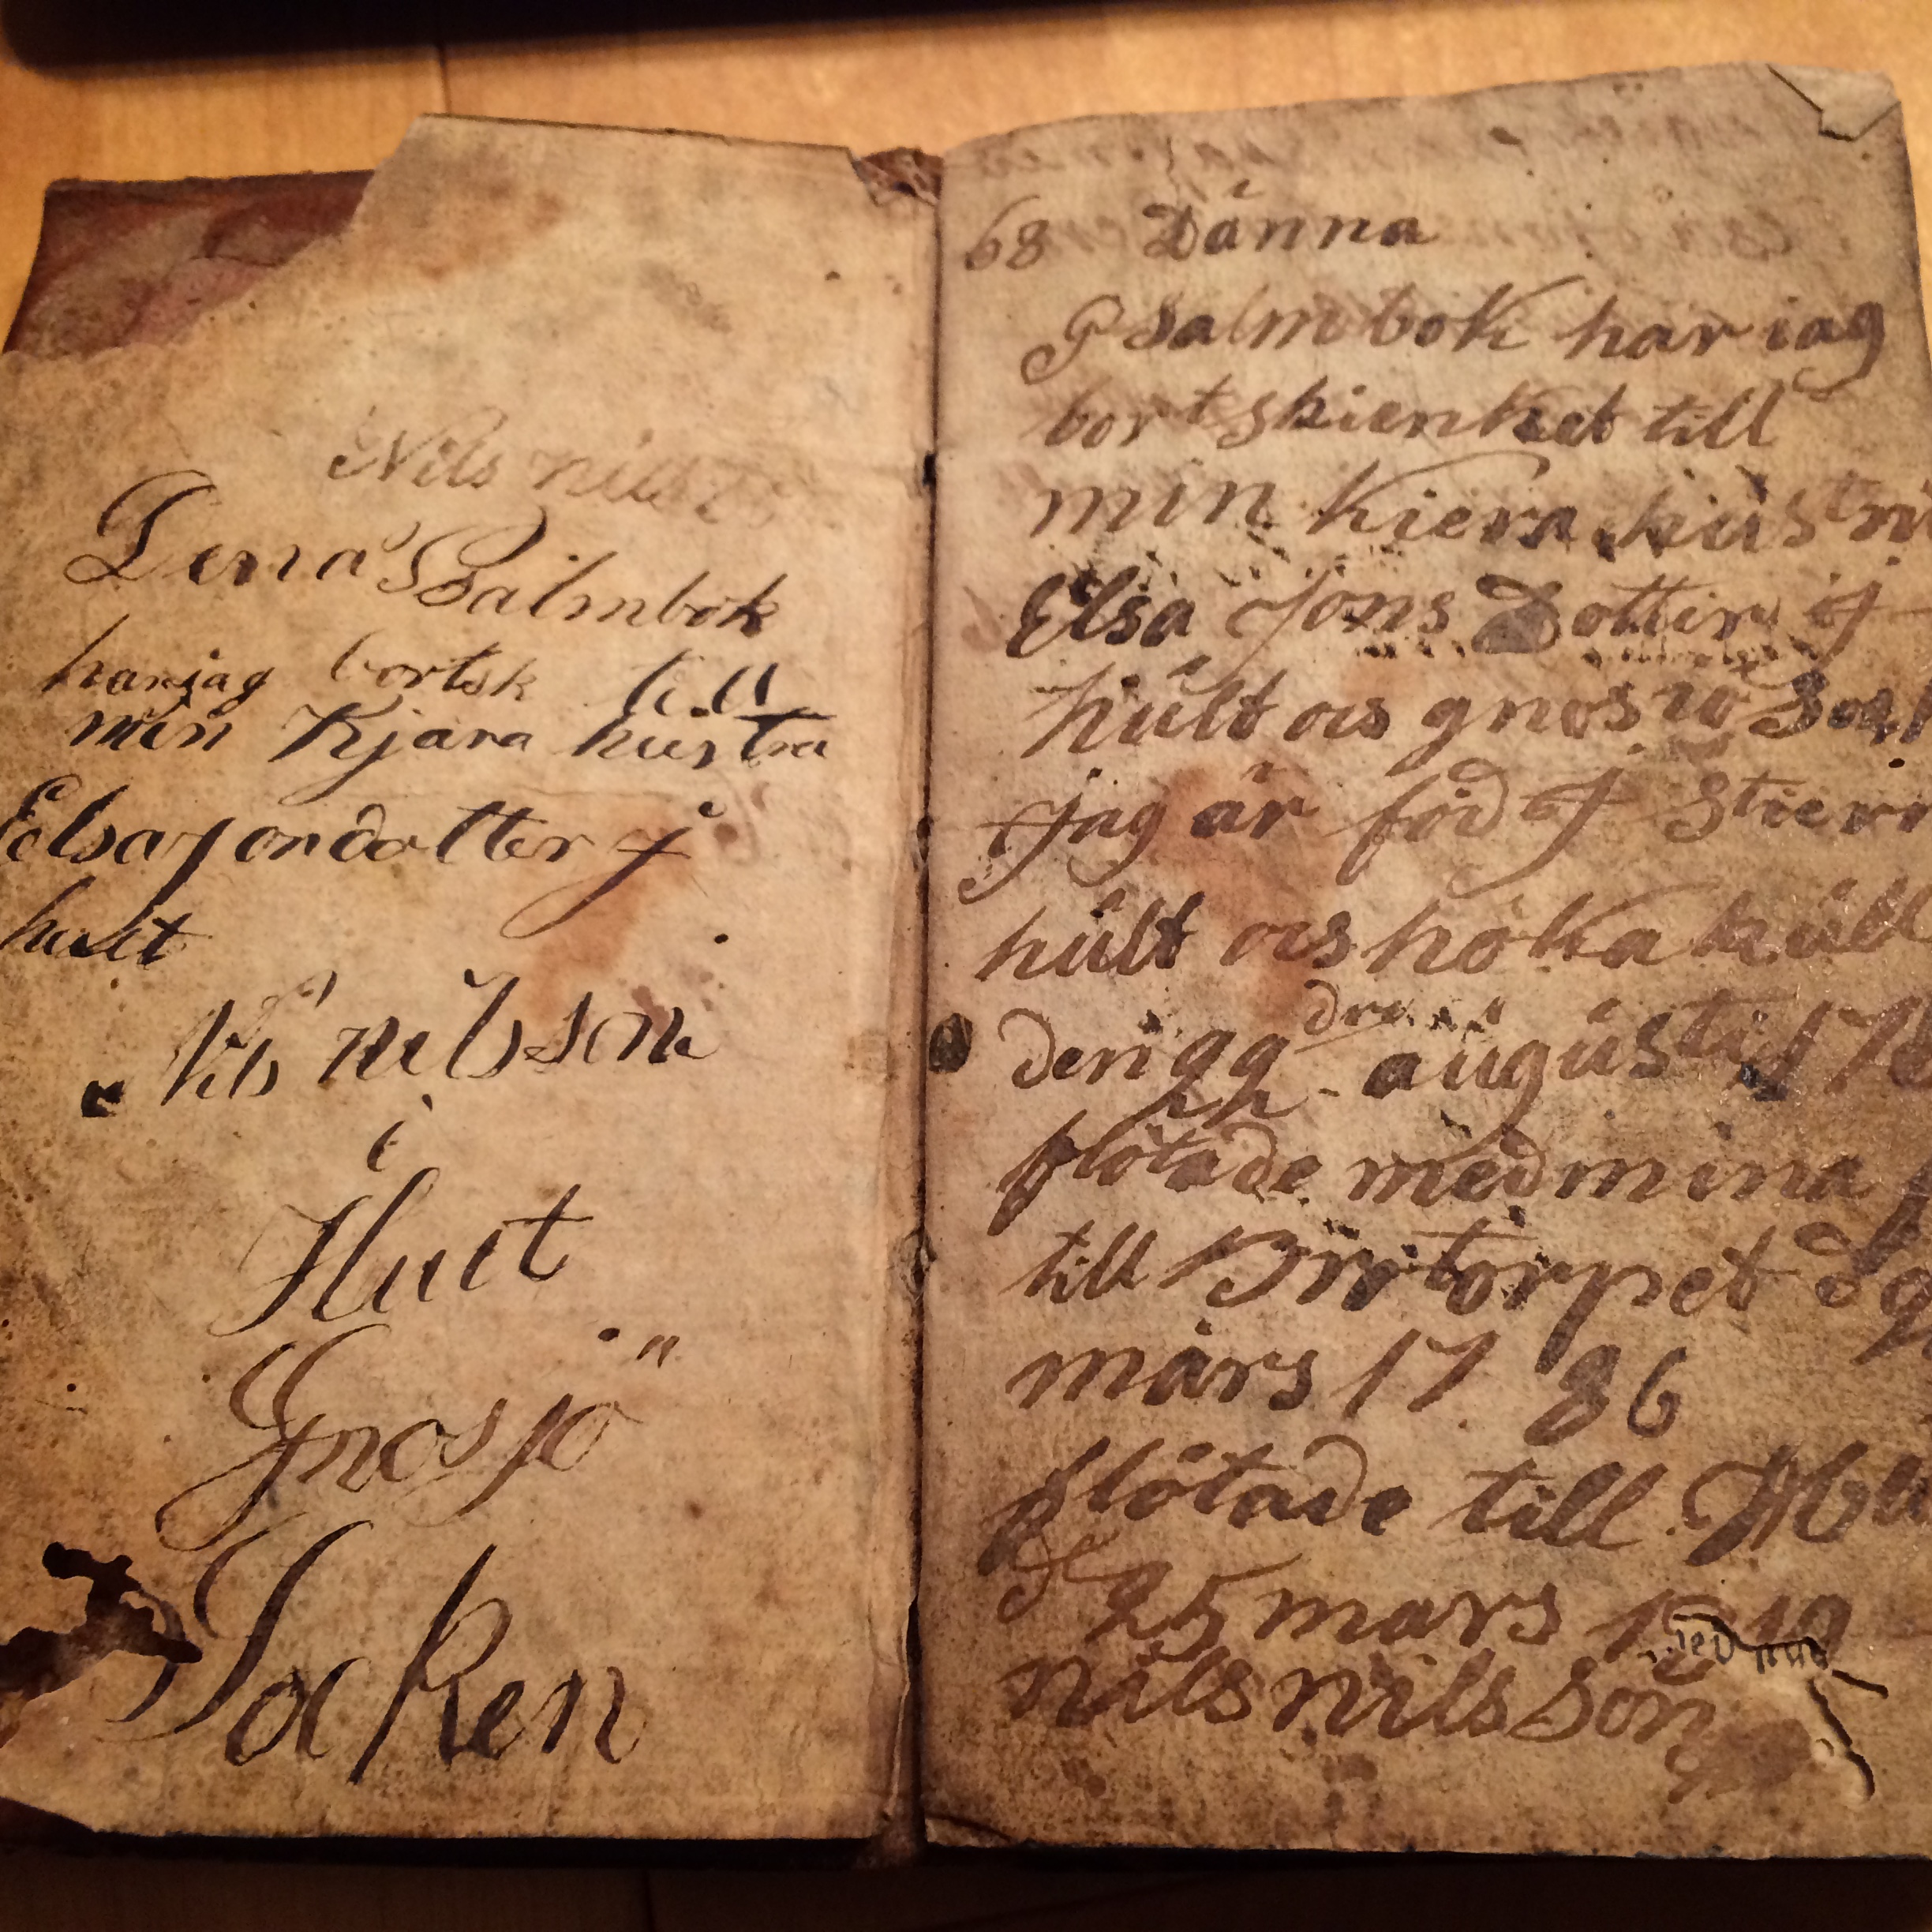 Nils
Dena Psalmbok
har jag bortsk till
min Kjära hustra
Elsa Jondotter j
hult
Nils nilsson
i
Hult
Gnosjö
Socken
68 Dänna
Psalmbok har iag
bortskienket till
min kiera hustru
Elsa Jons Dotter if
hult ocs gnosiö
Jag är föd J Stiern
hult ocs höka hult
den dra augusti
flötade med mina
till
mars 17 86
flötade till
d 25 mars
nils nilsson